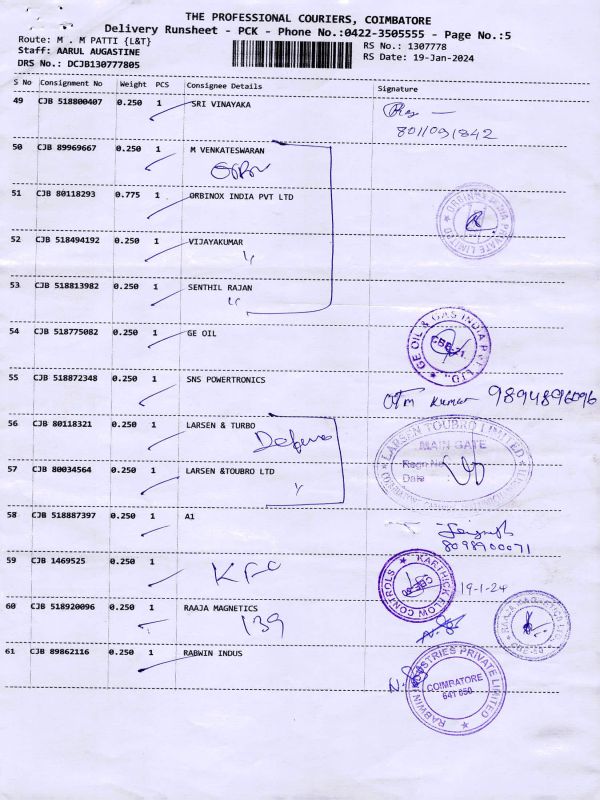 THE PROFESSIONAL COURIERS, COIMBATORE
Delivery Runsheet - PCK - Phone No.:0422-3505555 - Page No.:5
Route: M . M PATTI {L&T}
RS No.: 1307778
Staff: AARUL AUGASTINE
RS Date: 19-Jan-2024
DRS No.: DCJB130777805
S No Consignment No Weight PCS Consignee Details Signature
49 CJB 518800407 0.250 1 SRI VINAYAKA
8011091842
50 CJB 89969667 0.250 1 M VENKATESWARAN
51 CJB 80118293 0.775 1 ORBINOX INDIA PVT LTD
ORBINOX INDIA PRIVATE LIMITED
52 CJB 518494192 0.250 1 VIJAYAKUMAR
53 CJB 518813982 0.250 1 SENTHIL RAJAN
54 CJB 518775082 0.250 1 GE OIL
GE OIL & GAS INDIA PVT LTD.,
CBE-21.
55 CJB 518872348 0.250 1 SNS POWERTRONICS
Kumar 9894896096
56 CJB 80118321 0.250 1 LARSEN & TURBO
LARSEN TOUBRO LIMITED
MAIN GATE
Regn No
Date
57 CJB 80034564 0.250 1 LARSEN &TOUBRO LTD
58 CJB 518887397 0.250 1 A1
8098900071
59 CJB 1469525 0.250 1 KFC
KARTHICK FLOW CONTROLS
19-1-24
60 CJB 518920096 0.250 1 RAAJA MAGNETICS
139
61 CJB 89862116 0.250 1 RABWIN INDUS
RABWIN INDUSTRIES PRIVATE LIMITED
COIMBATORE
641 050